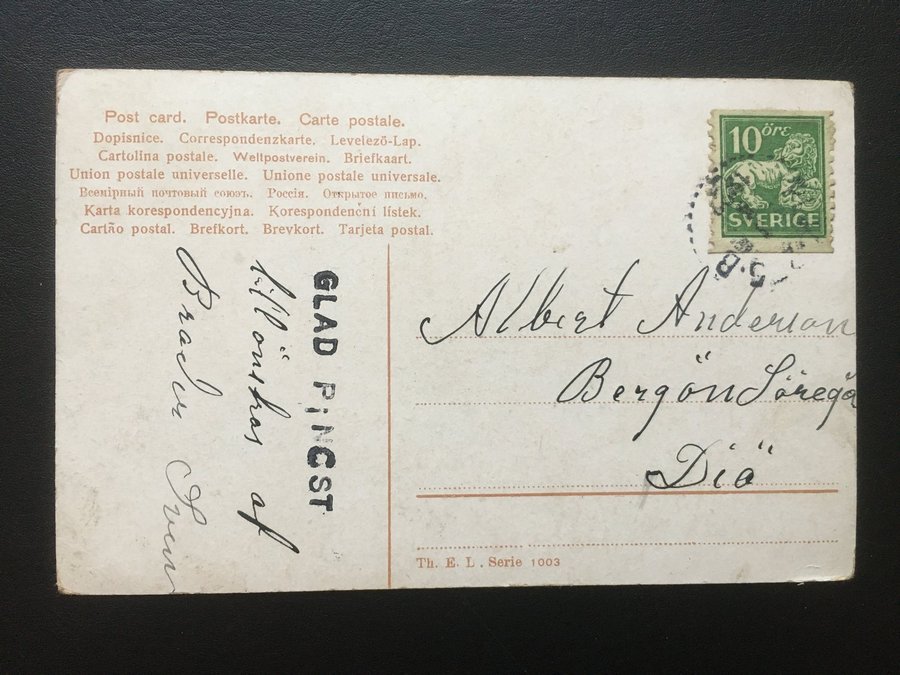 Post card. Postkarte. Carte postale.
Dopisnice. Correspondenzkarte. Levelező-Lap.
Cartolina postale. Weltpostverein. Briefkaart.
Union postale universelle. Unione postale universale.
Всемірный почтовый союзъ. Россія. Открытое письмо.
Karta korespondencyjna. Korespondenční lístek.
Cartão postal. Brefkort. Brevkort. Tarjeta postal.
10 öre
SVERIGE
GLAD PiNGST
tillönskas af
Broder Sven
Albert Anderson
Bergön Söregå
Diö
Th. E. L. Serie 1003